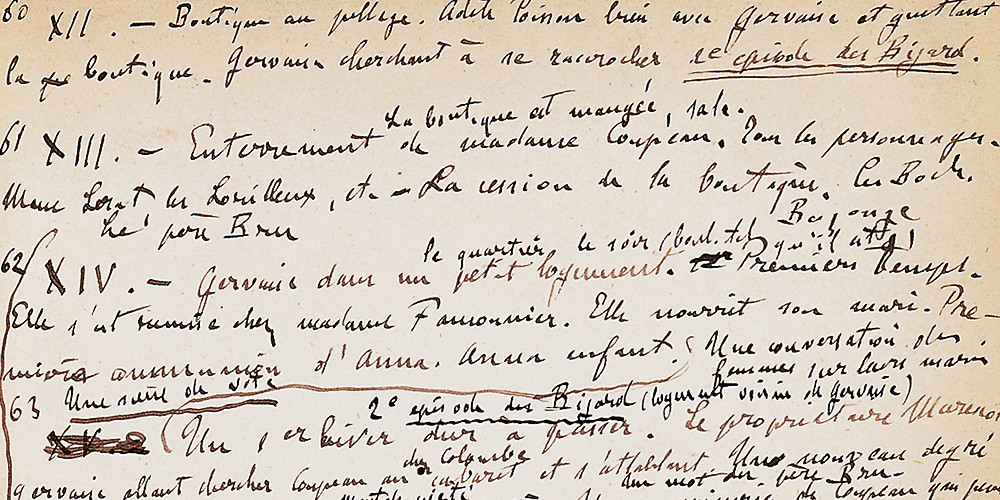 60 XII. — Boutique au pillage. Adèle Poisson bien avec Gervaise et guettant
la boutique. Gervaise cherchant à se raccrocher 1e épisode des Bijard.
La boutique est mangée, sale.
61 XIII. — Enterrement de madame Coupeau. Tous les personnages.
Mme Lerat les Lorilleux, etc — La cession de la boutique. Les Boche.
Le père Bru
Bazouge
le quartier, le soir (boul. tel qu'il est)
62 XIV. — Gervaise dans un petit logement. Premiers temps.
Elle s'est remise chez madame Fauconnier. Elle nourrit son mari. Pre-
mière communion d'Anna. Anna enfant. Une conversation des
femmes sur leurs maris
63 Une série de
2e épisode des Bijard (logement voisin de Gervaise)
XV — Un 1er hiver dur à passer. Le propriétaire
du Colombe
Gervaise allant chercher Coupeau au cabaret et s'attablant. Un nouveau degré
Un mot du père Bru.
Coupeau qui